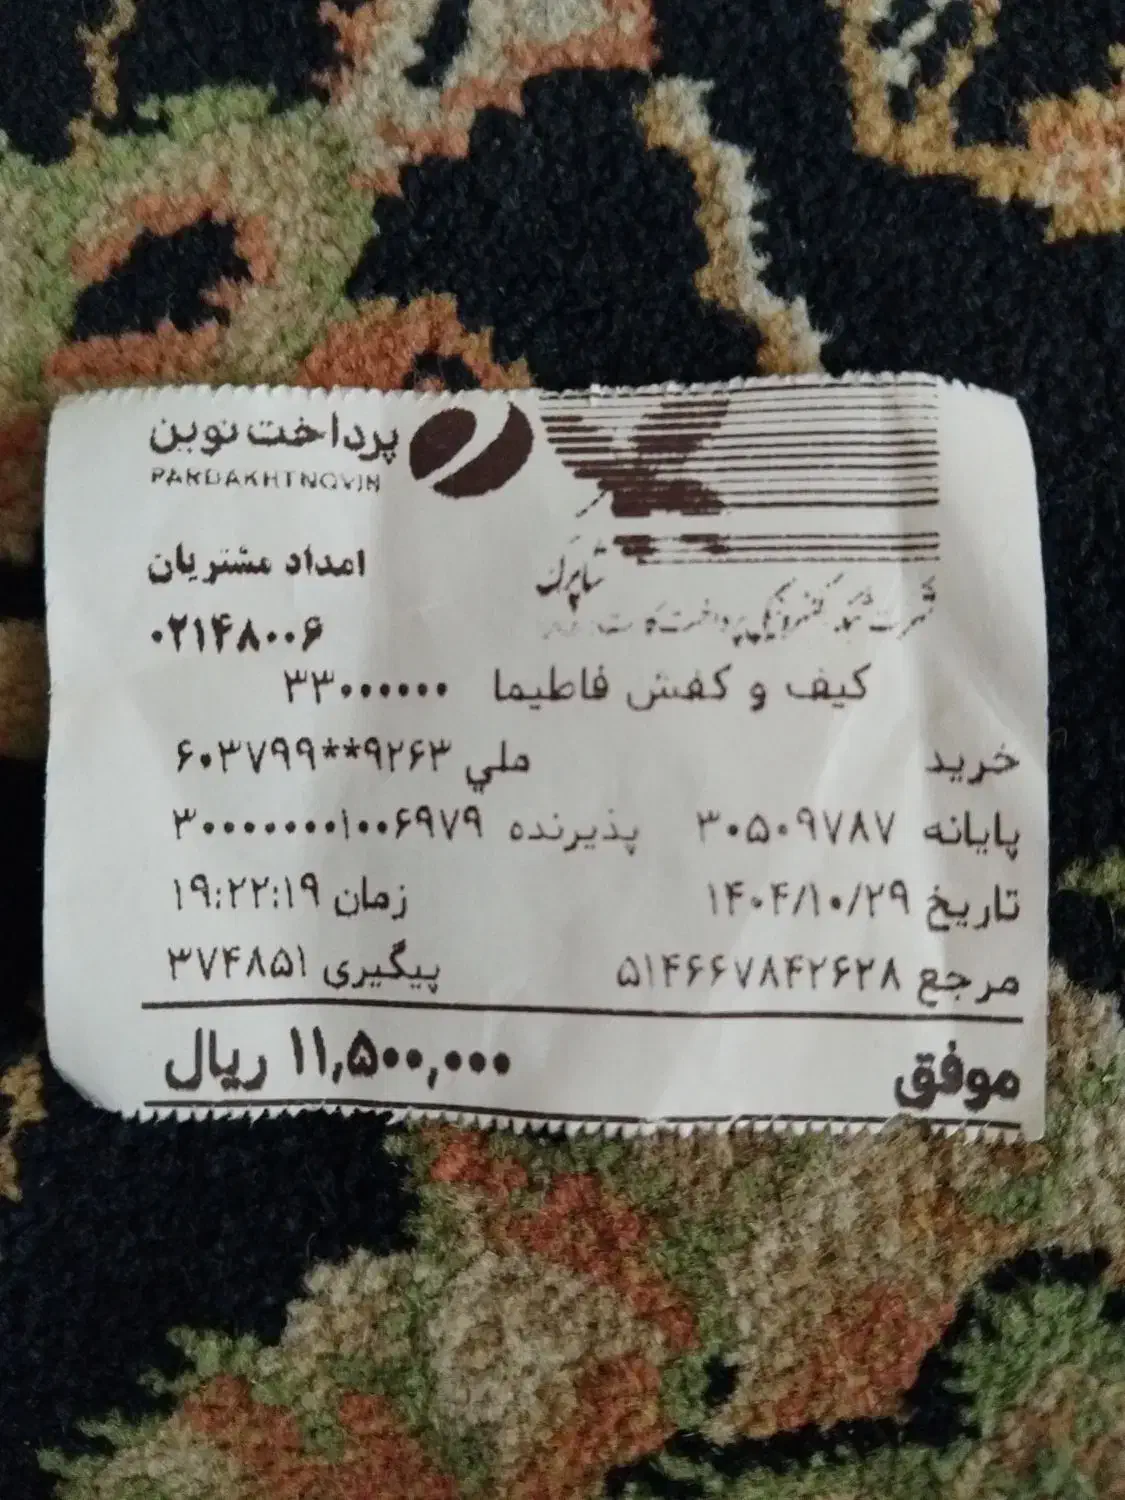 پرداخت نوین
PARDAKHTNOVIN
شاپرک
امداد مشتریان
۰۲۱۴۸۰۰۶
کیف و کفش فاطیما ۳۳۰۰۰۰۰۰
خرید ملي ۶۰۳۷۹۹**۹۲۶۳
پایانه ۳۰۵۰۹۷۸۷ پذیرنده ۳۰۰۰۰۰۰۰۱۰۰۶۹۷۹
تاریخ ۱۴۰۴/۱۰/۲۹ زمان ۱۹:۲۲:۱۹
مرجع ۵۱۴۶۶۷۸۴۲۶۲۸ پیگیری ۳۷۴۸۵۱
موفق ۱۱,۵۰۰,۰۰۰ ریال